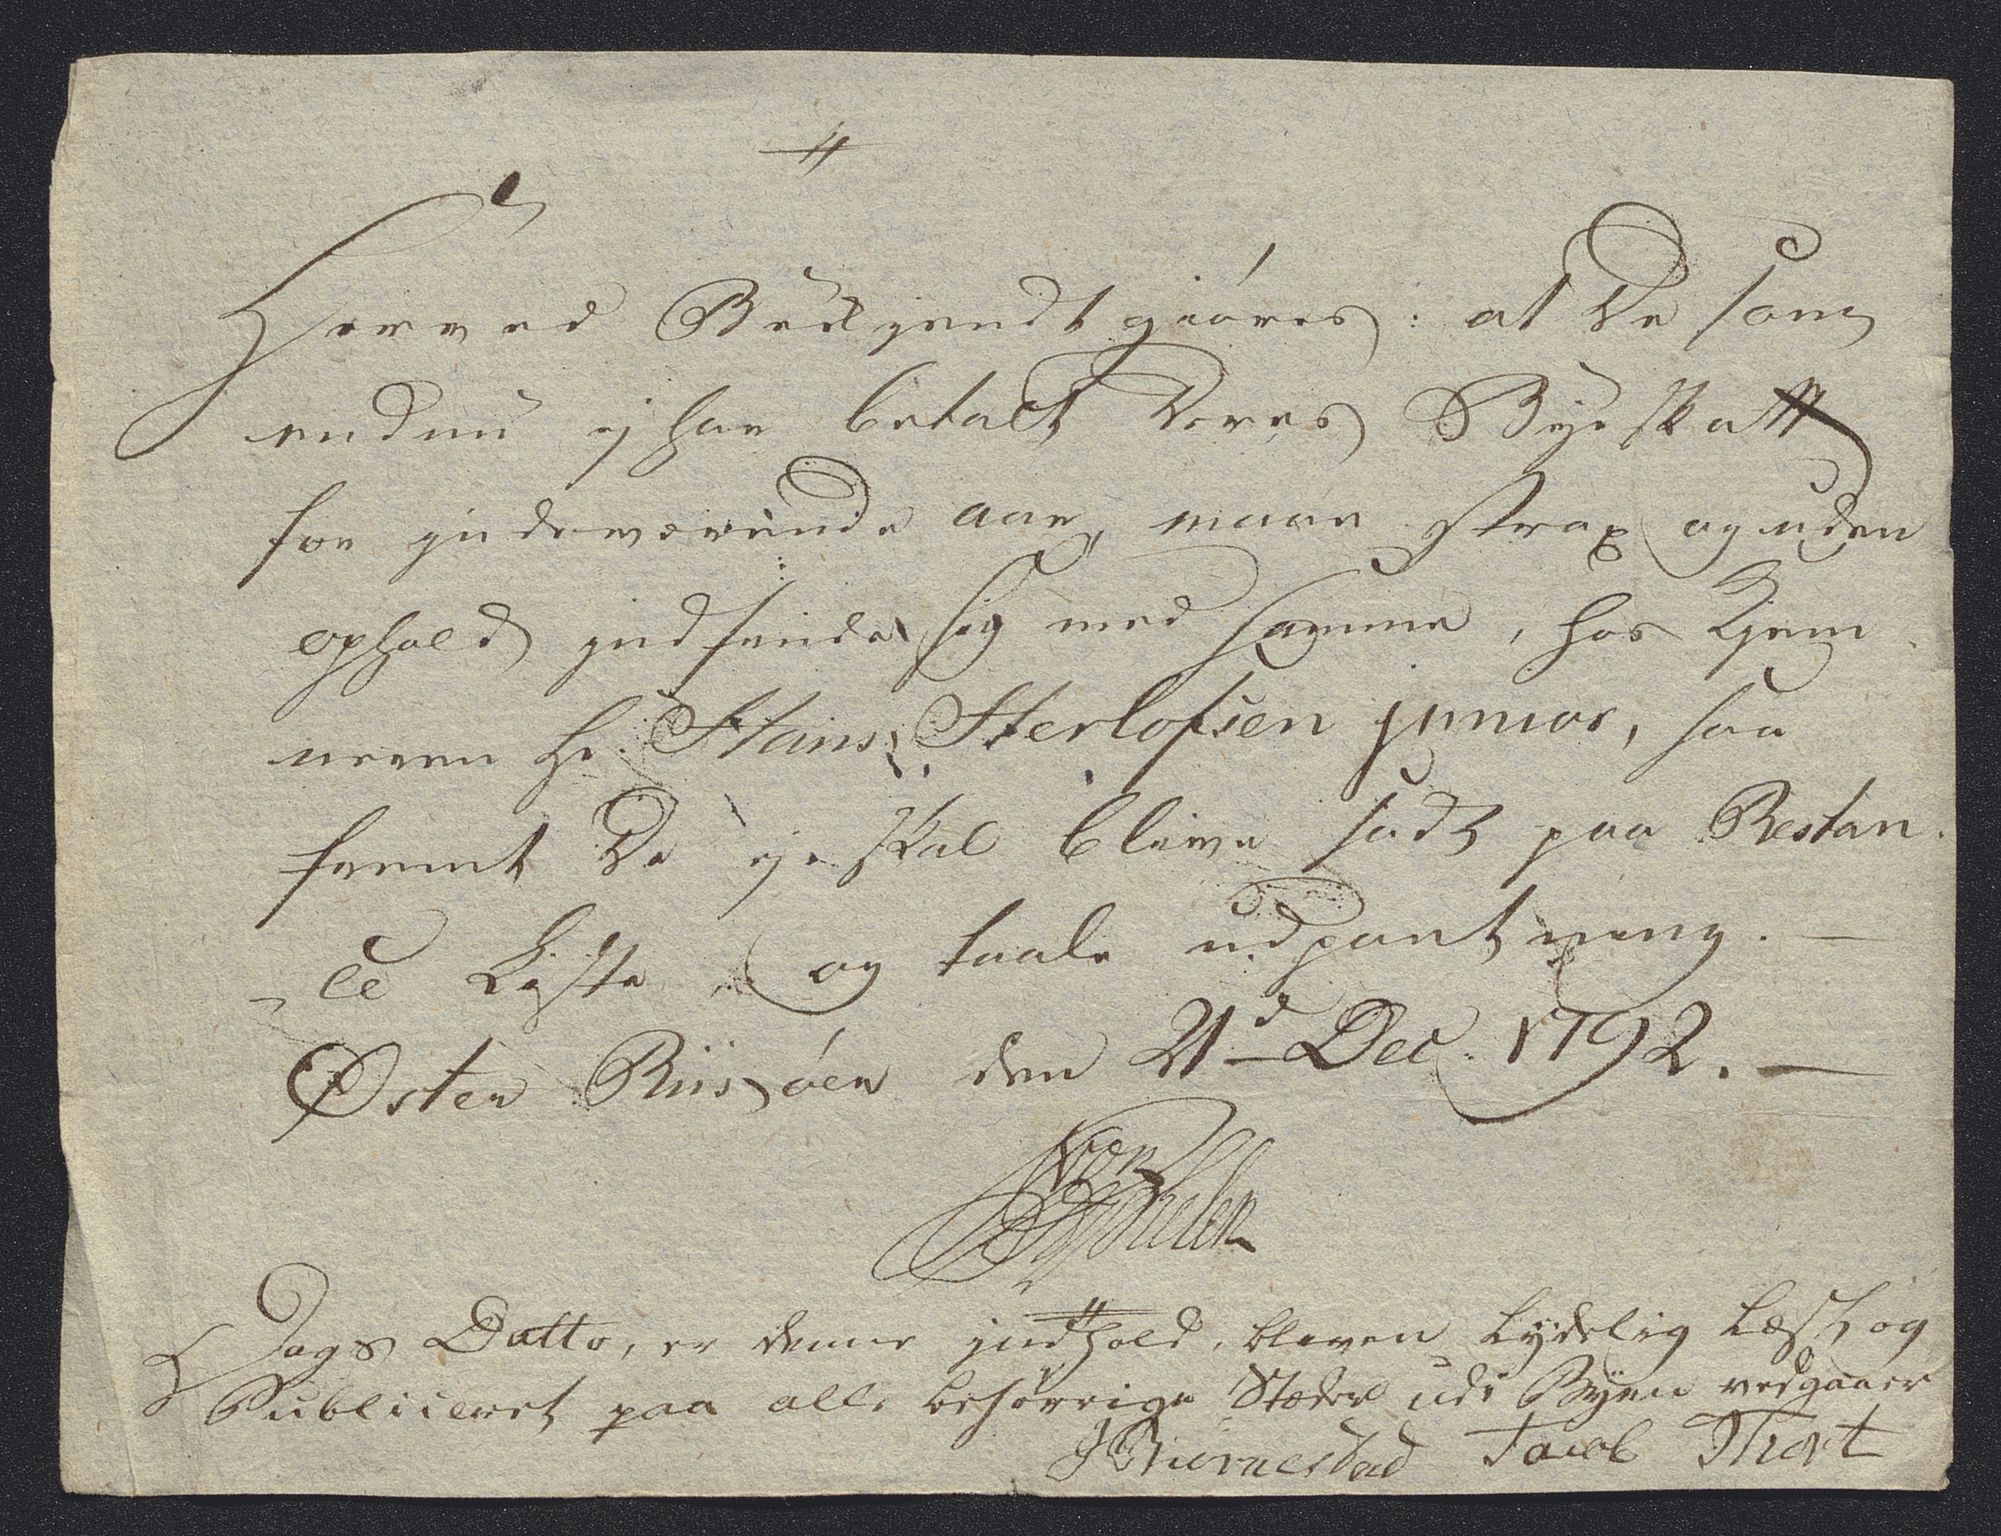 Herved Bekjendtgiøres: at De som
endnu ej har betalt deres Bye skatt
for indeværende aar, maae strax og uden
ophold indfinde sig med samme, hos Kjem
neren Hr Hans Herlofsen junior, saa
fremt De ej skal blive sadt paa Restan
ce Liste, og taale udpantning. —
Øster Riisøer den 21d Dec. 1792. —
Dags Datto, er denne indhold, bleven lydelig læst og
Publiceret paa alle behørrige Stæder udi Byen vedgaaer
J Biørnestad Jacob Thort